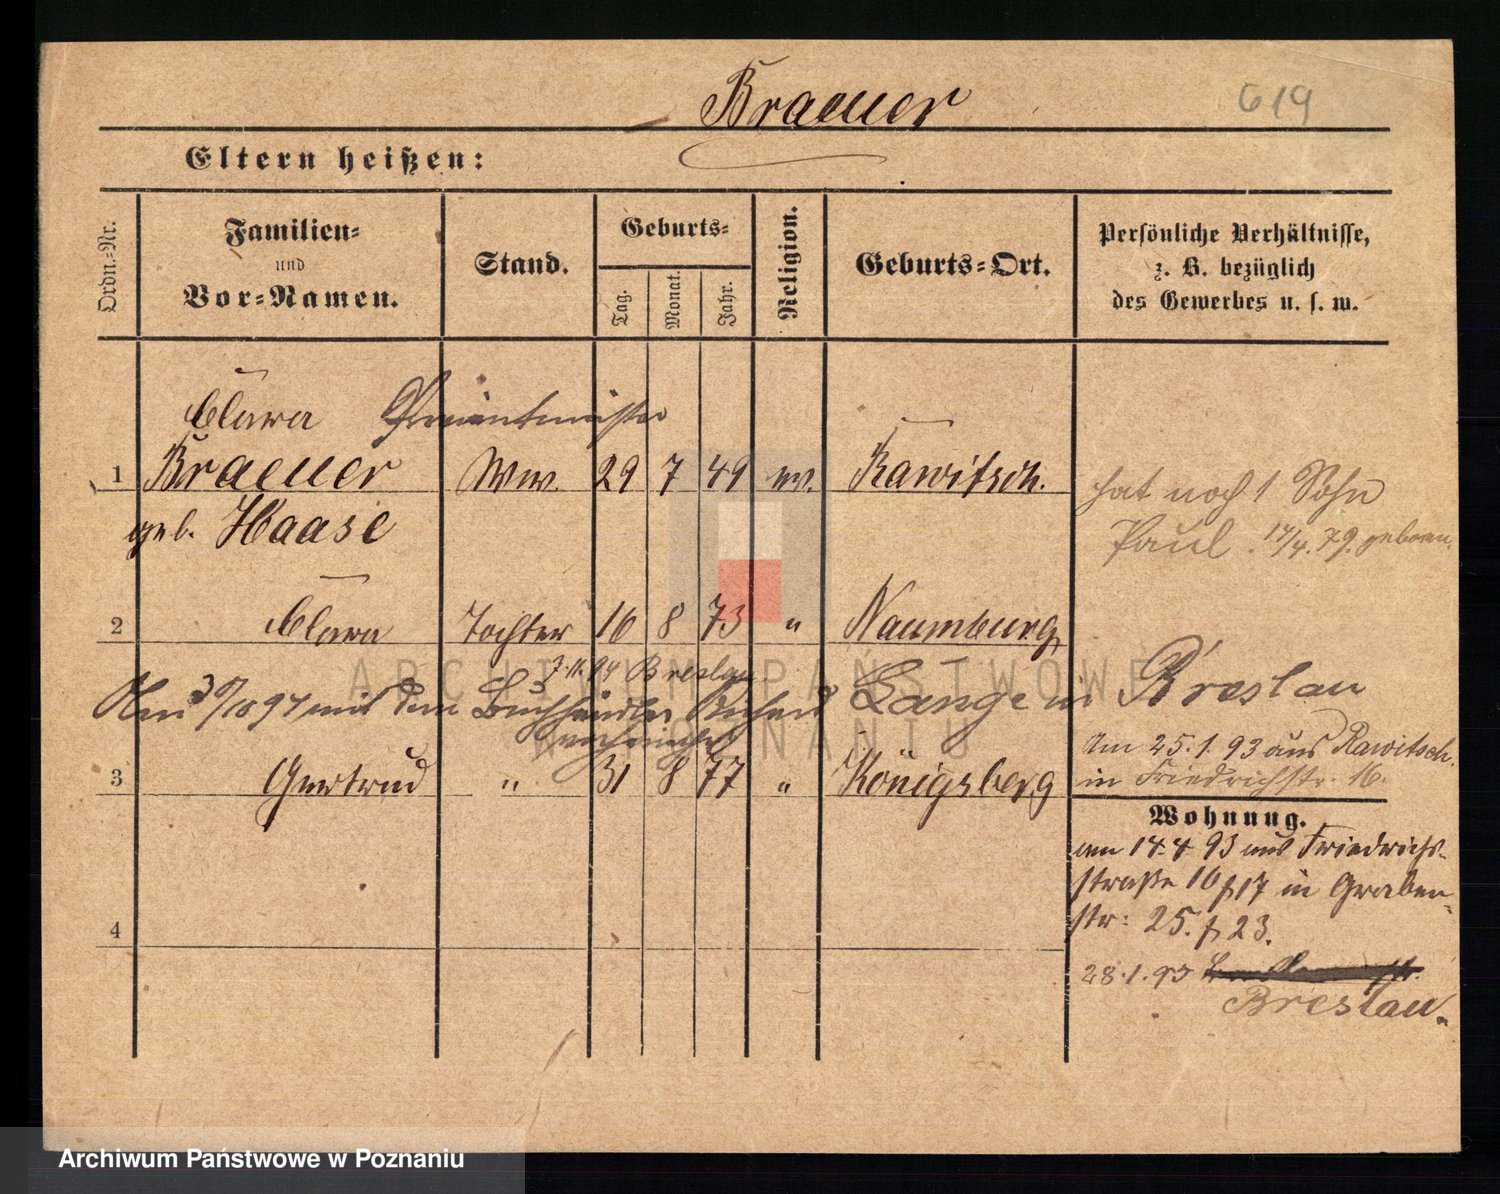 Braeuer
619
Eltern heißen:
Ordn.-Nr.
Familien-
und
Vor-Namen.
Stand.
Geburts-
Tag.
Monat.
Jahr.
Religion.
Geburts-Ort.
Persönliche Verhältnisse,
z. B. bezüglich
des Gewerbes u. s. w.
Clara Proviantmeister
1 Braeuer Ww. 29 7 49 ev. Rawitsch.
geb. Haase
hat noch 1 Sohn
Paul 17/4. 79. geboren.
2 Clara Tochter 16 8 73 " Naumburg
7.11.94 Breslau
94 mit dem Buchhändler Richard Lange in Breslau
3 Gertrud " 31 8 77 " Königsberg
Am 25.1.93 aus Rawitsch.
in Friedrichstr. 16.
Wohnung.
am 14.4.93 aus Friedrichs-
straße 16/17 in Graben-
str: 25. f 23.
28.1.95
Breslau.
4
ARCHIWUM PAŃSTWOWE
W POZNANIU
Archiwum Państwowe w Poznaniu